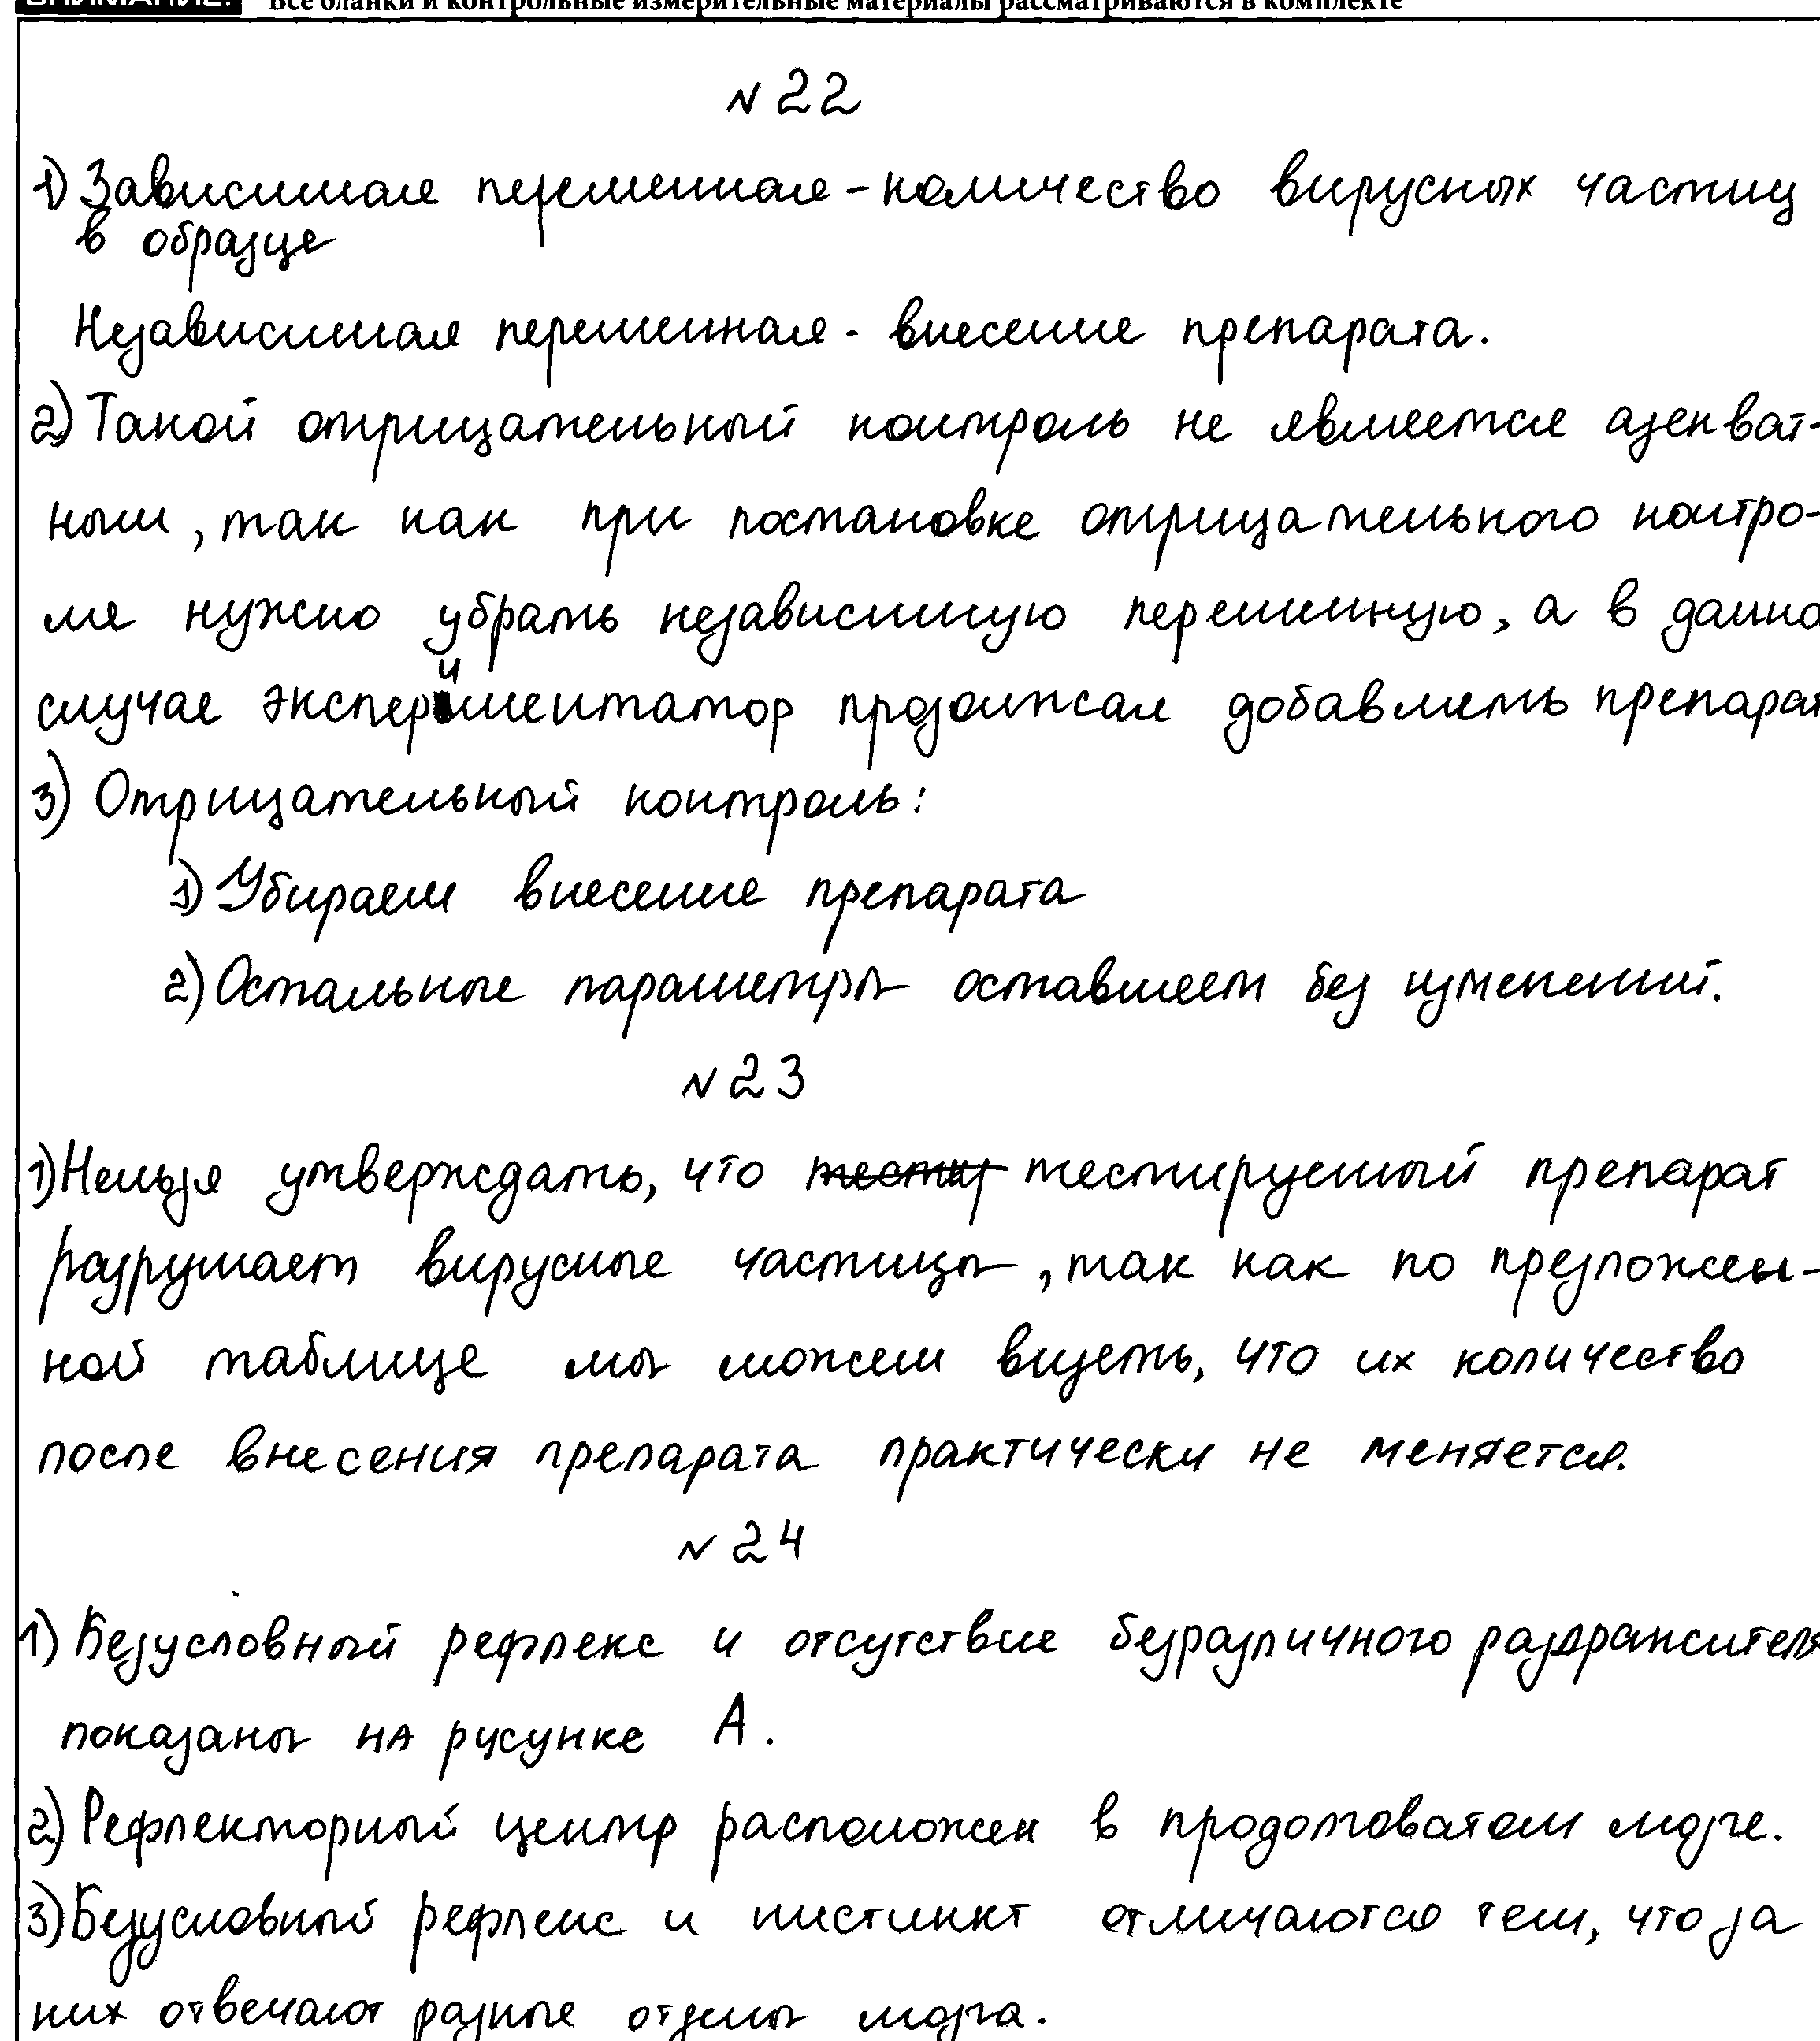 ВНИМАНИЕ! Все бланки и контрольные измерительные материалы рассматриваются в комплекте
№22
1) Зависимая переменная - количество вирусных частиц
в образце
Независимая переменная - внесение препарата.
2) Такой отрицательный контроль не является адекват-
ным, так как при постановке отрицательного контро-
ля нужно убрать независимую переменную, а в данно
случае экспериментатор продолжал добавлять препарат
3) Отрицательный контроль:
1) Убираем внесение препарата
2) Остальные параметры оставляем без изменений.
№23
1) Нельзя утверждать, что тестир тестируемый препарат
разрушает вирусные частицы, так как по предложен-
ной таблице мы можем видеть, что их количество
после внесения препарата практически не меняется.
№24
1) Безусловный рефлекс и отсутствие безразличного раздражителя
показаны на русунке А.
2) Рефлекторный центр расположен в продолговатом мозге.
3) Безусловный рефлекс и инстинкт отличаются тем, что за
них отвечают разные отделы мозга.